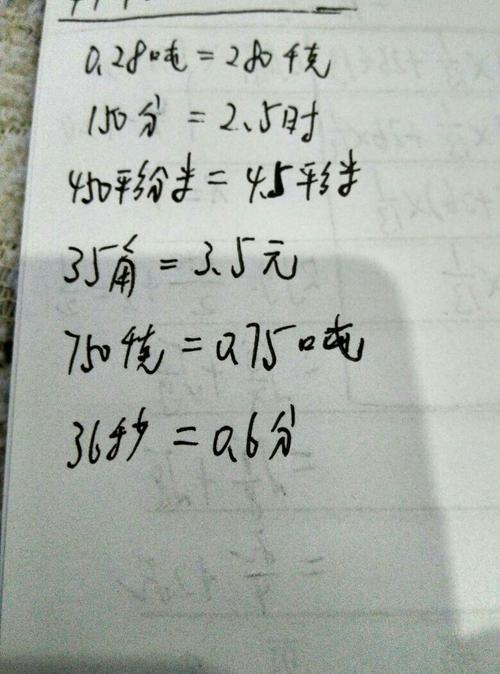 0.28吨=280千克
150分=2.5时
450平分米=4.5平米
35角=3.5元
750千克=0.75吨
36秒=0.6分